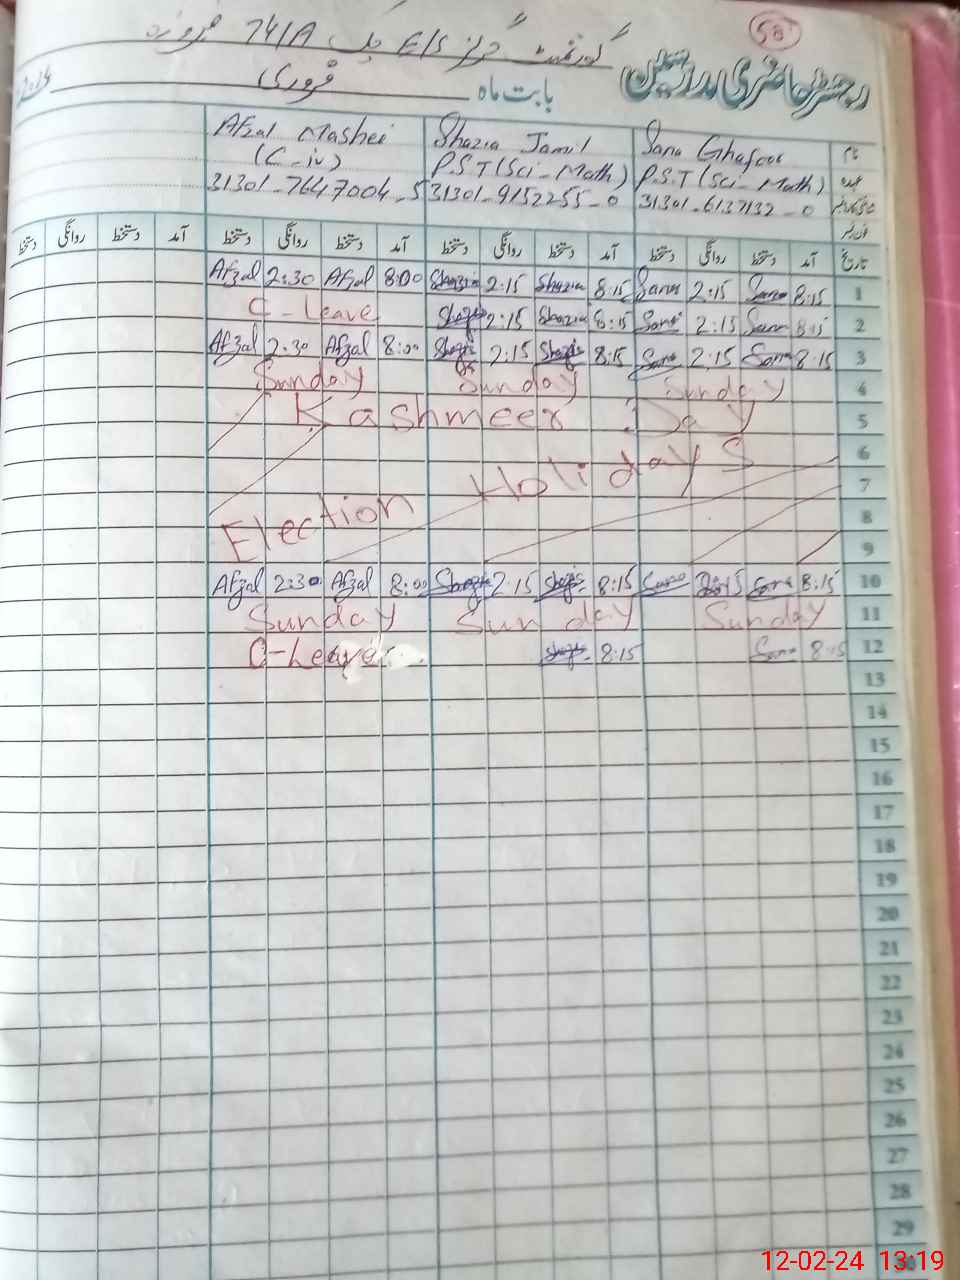 58
گورنمنٹ گرلز E/S چک 74/A فیروزہ
رجسٹر حاضری مدرسین
بابت ماہ فروری
نام Sana Ghafoor Shazia Jamil Afzal Mashei
عہدہ P.S.T (Sci-Math) P.S.T (Sci-Math) (C-iv)
31301-7647004-5 31301-9152255-0 31301-6137132-0
تاریخ آمد دستخط روانگی دستخط آمد دستخط روانگی دستخط آمد دستخط روانگی دستخط آمد دستخط روانگی دستخط
Afzal 2:30 Afzal 8:00 Shazia 2:15 Shazia 8:15 Sana 2:15 Sana 8:15 1
C-Leave Shazia 2:15 Shazia 8:15 Sana 2:15 Sana 8:15 2
Afzal 2:30 Afzal 8:00 Shazia 2:15 Shazia 8:15 Sana 2:15 Sana 8:15 3
Sunday Sunday Sunday 4
Kashmeer Day 5
6
7
Election Holidays 8
9
Afzal 2:30 Afzal 8:00 Shazia 2:15 Shazia 8:15 Sana 2:15 Sana 8:15 10
Sunday Sunday Sunday 11
C-Leave Shazia 8:15 Sana 8:15 12
13
14
15
16
17
18
19
20
21
22
23
24
25
26
27
28
29
30
12-02-24 13:19